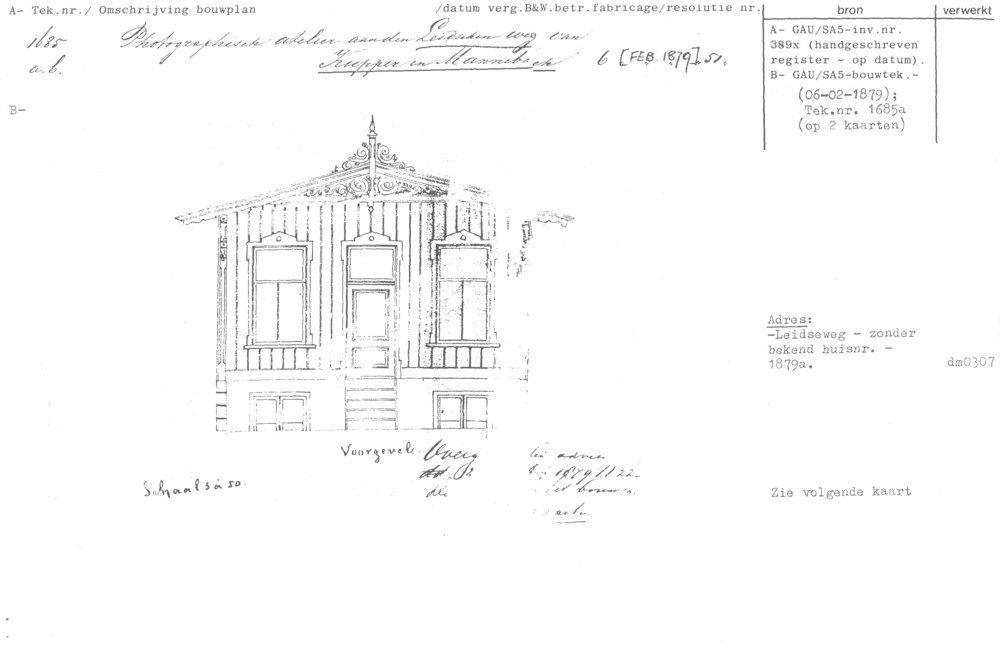 A- Tek.nr./ Omschrijving bouwplan /datum verg.B&W.betr.fabricage/resolutie nr.
bron
verwerkt
1685 Photographisch atelier aan den Leidschen weg van
a.b. Kupper en Mannebach 6 [FEB. 1879]. 51.
A- GAU/SA5-inv.nr.
389x (handgeschreven
register - op datum).
B- GAU/SA5-bouwtek.-
(06-02-1879);
Tek.nr. 1685a
(op 2 kaarten)
B-
Adres:
-Leidseweg - zonder
bekend huisnr. -
1879a.
dm0307
Voorgevel.
adres
1879 / 122.
bouwen
Schaal 1 à 50.
Zie volgende kaart